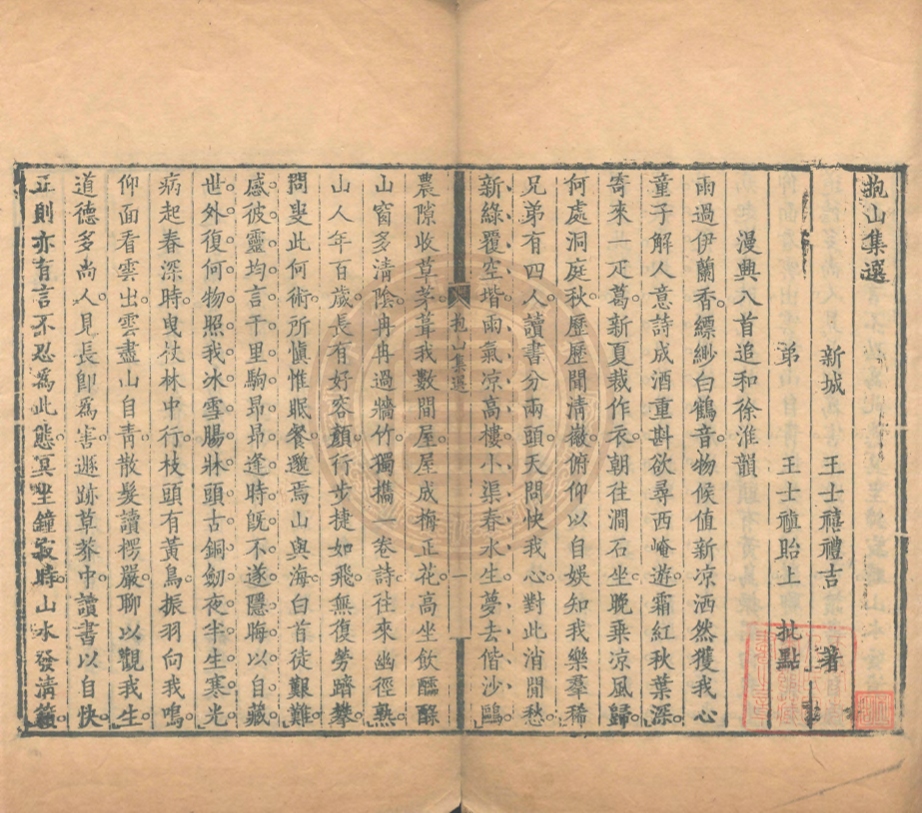 抱山集選
新城 王士禧禮吉 著
弟 王士禛貽上 批點
漫興八首追和徐淮韻
雨過伊蘭香縹緲白鶴音物候值新凉洒然獲我心
童子解人意詩成酒重斟欲尋西崦遊霜紅秋葉深
寄來一疋葛新夏裁作衣朝往澗石坐晚乘凉風歸
何處洞庭秋歷歷聞清徽俯仰以自娛知我樂羣稀
兄弟有四人讀書分兩頭天問快我心對此消閒愁
新綠覆空堦雨氣凉高樓小渠春水生夢去偕沙鷗
抱山集選 一
農隙收草茅葺我數間屋屋成梅正花高坐飲醽醁
山窗多清陰冉冉過牆竹獨攜一卷詩往來幽徑熟
山人年百歲長有好容顏行步捷如飛無復勞躋攀
問叟此何術所愼惟眠餐邈焉山與海白首徒艱難
感彼靈均言千里駒昻昻逢時旣不遂隱晦以自藏
世外復何物照我冰雪腸牀頭古銅劒夜半生寒光
病起春深時曳杖林中行枝頭有黃鳥振羽向我鳴
仰面看雲出雲盡山自靑散髮讀楞嚴聊以觀我生
道德多尚人見長卽爲害遯跡草莽中讀書以自快
正則亦有言不忍爲此態冥坐鐘寂時山水發淸籟